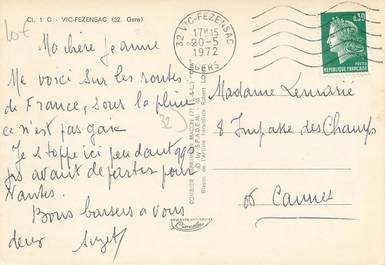 CL 1 C - VIC-FEZENSAC (32. Gers)
Lot
Ma chère Jeanne
Me voici sur les routes
de France, sous la pluie
ce n'est pas gai.
Je stoppe ici pendant qqs
jrs avant de partir pour
Nantes.
Bons baisers a vous
deux Suzet
32
32 VIC-FEZENSAC
17H15
20-5
1972
GERS
0,30
REPUBLIQUE FRANÇAISE
POSTES
Madame Lemarie
8 Impasse des Champs
06 Cannes
© by S.P.A.D.E.M.
Combier